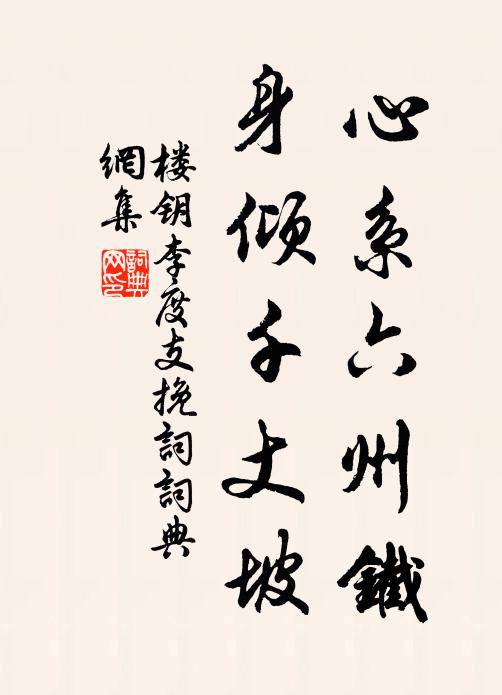 心系六州鐵
身傾千丈坡
楼钥李度支挽詞詞典
網集
詞典网印